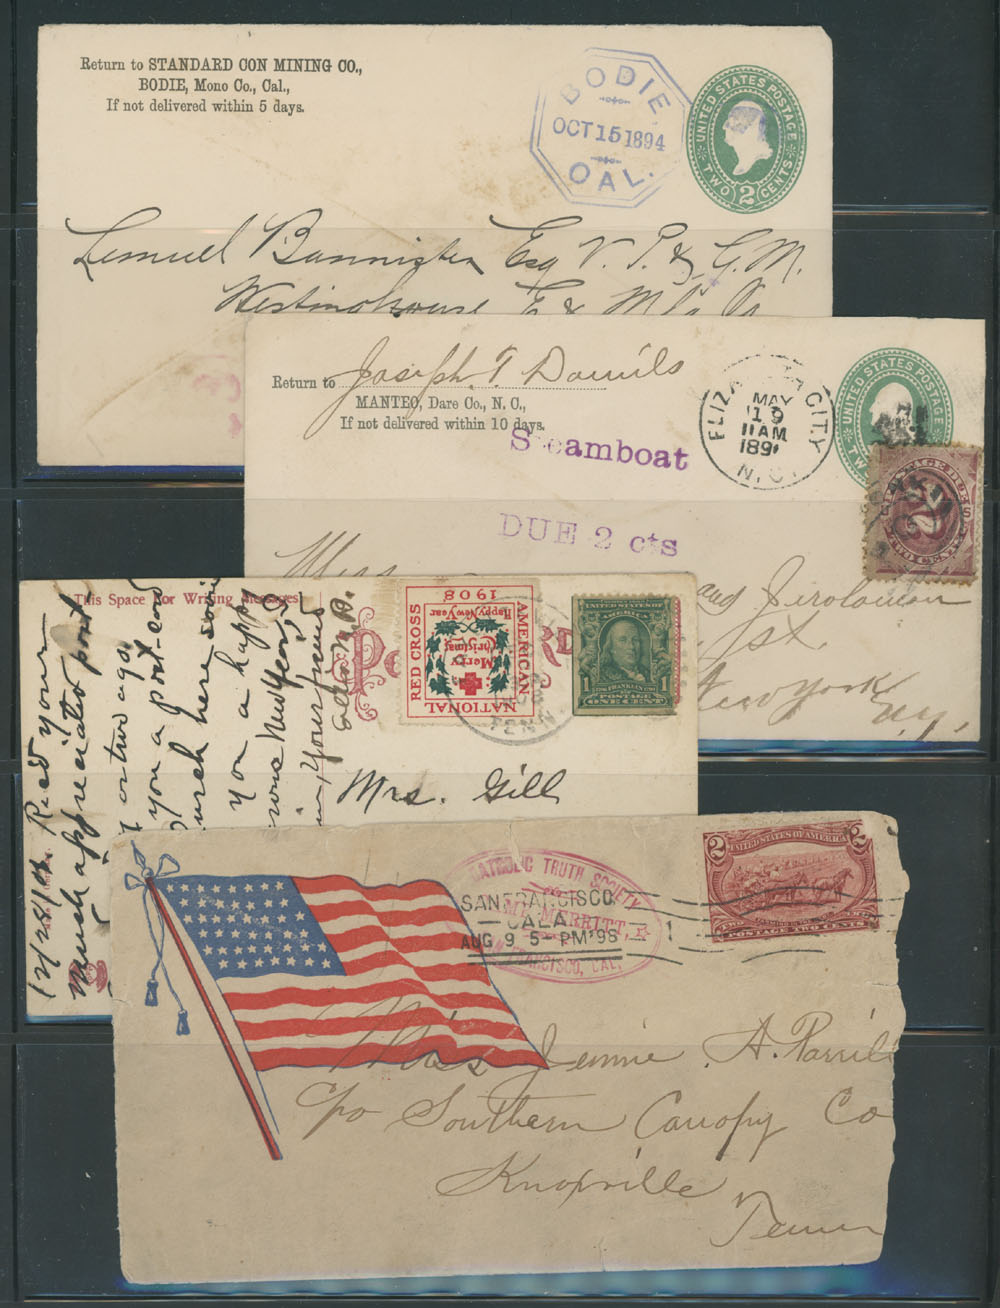 Return to STANDARD CON MINING CO.,
BODIE, Mono Co., Cal.,
If not delivered within 5 days.
BODIE
OCT 15 1894
CAL.
UNITED STATES POSTAGE
TWO 2 CENTS
Lemuel Bannister Esq V. P. & G. M.
Westinghouse E & Mfg Co
Return to Joseph T Daniels
MANTEO, Dare Co., N. C.,
If not delivered within 10 days.
Steamboat
DUE 2 cts
CITY
MAY
19
11 AM
189
N.C.
UNITED STATES POSTAGE
TWO
POSTAGE DUE
2
TWO CENTS
Miss
St.
New York
N.Y.
This Space For Writing Messages
12/28/08 Rec'd your
much appreciated post-
or two ago.
you a post-card
church here
you a happy
New Year,
Your friend
1908
Happy New Year
Merry Christmas
RED CROSS
AMERICAN
NATIONAL
TENN.
UNITED STATES OF AMERICA
1 1
1706 FRANKLIN 1790
POSTAGE
ONE CENT
Mrs. Gill
CATHOLIC TRUTH SOCIETY
CAMP MERRITT,
SAN FRANCISCO, CAL.
SAN FRANCISCO
CALA
AUG 9 5-PM '98
1
2 2
UNITED STATES OF AMERICA
POSTAGE TWO CENTS
Miss Jennie A. Parrill
c/o Southern Canopy Co
Knoxville
Tenn